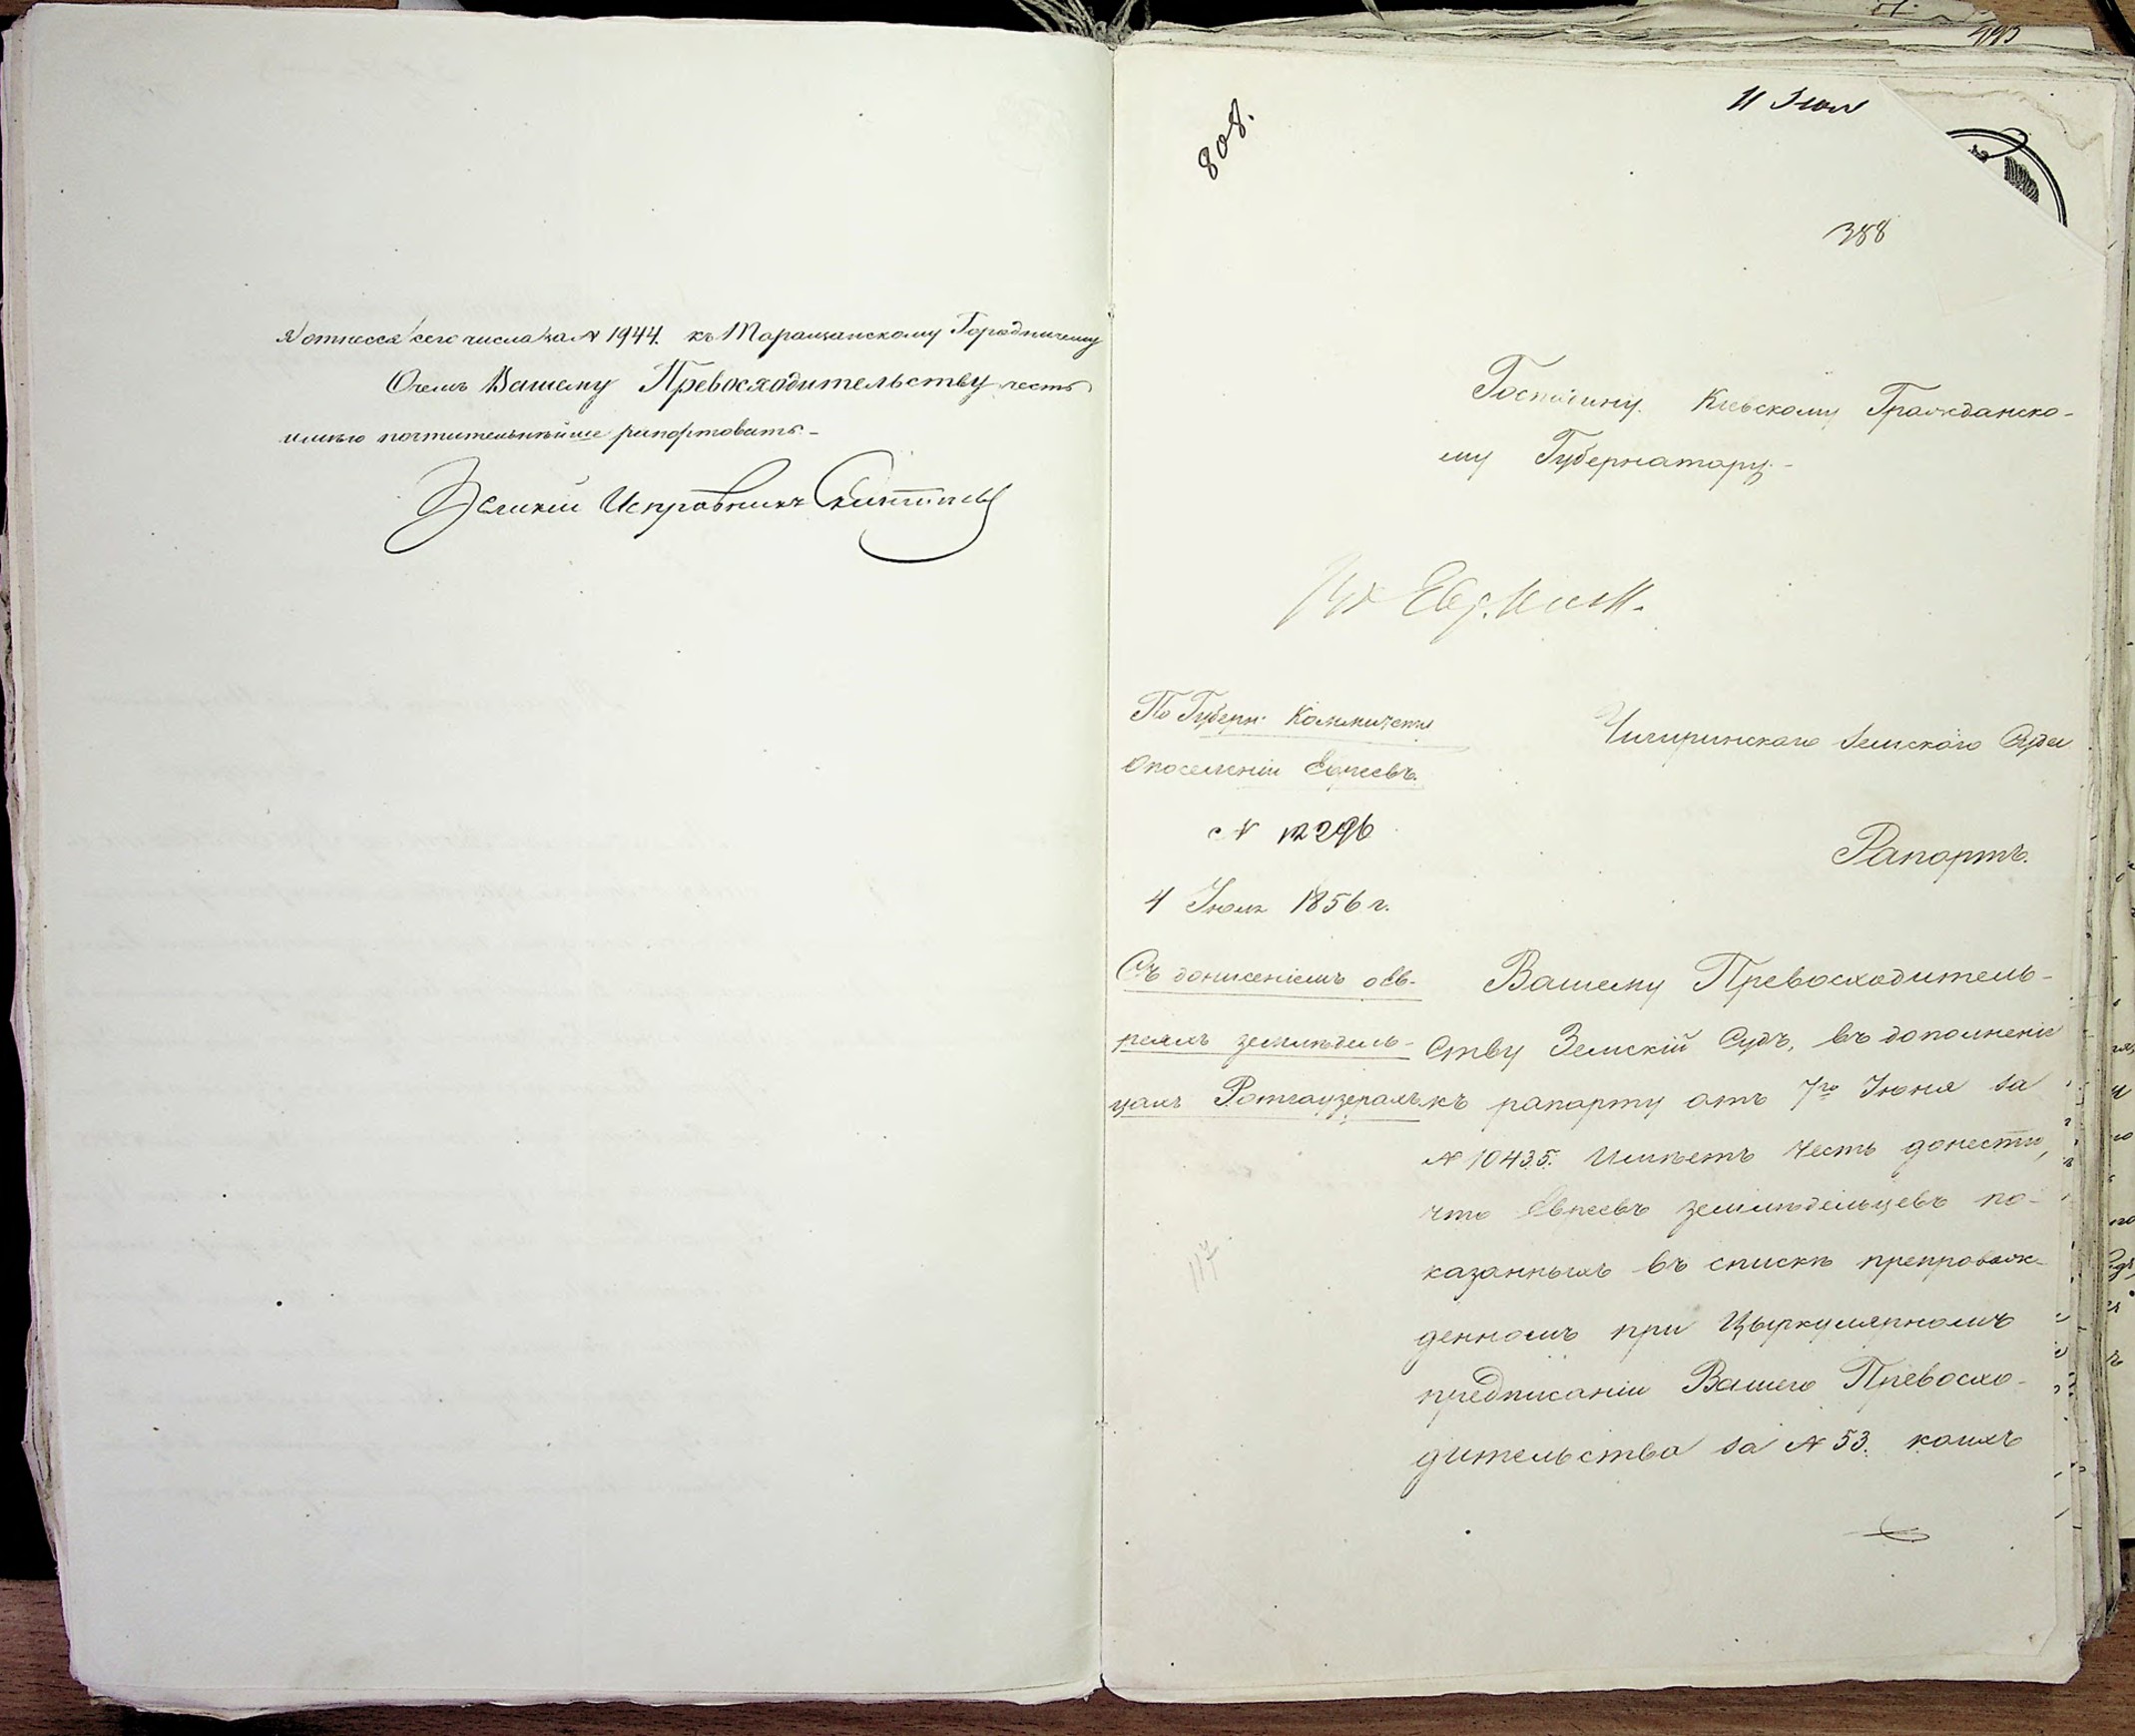 я отнесся сего числа за № 1944. къ Таращанскому Городничему
О чемъ Вашему Превосходительству честь
имѣю почтительнѣйше рапортовать.-
Земскій Исправникъ
808.
11 Июл
388
Господину Кіевскому Гражданско-
му Губернатору.-
По Губерн: Коммитету
О поселеніи Евреевъ.
№ 12296
4 Іюля 1856 г.
Чигиринскаго Земскаго Суда
Рапортъ.
Съ донесеніемъ о Ев-
реяхъ земледѣль-
цахъ Ротгаузерахъ
Вашему Превосходитель-
ству Земскій Судъ, въ дополненіе
къ рапорту отъ 7го Іюня за
№ 10435. Имѣетъ честь донести,
что Евреевъ земледѣльцевъ по-
казанныхъ въ спискѣ препровож-
денномъ при Цыркулярномъ
предписаніи Вашего Превосхо-
дительства за № 53. коихъ
117